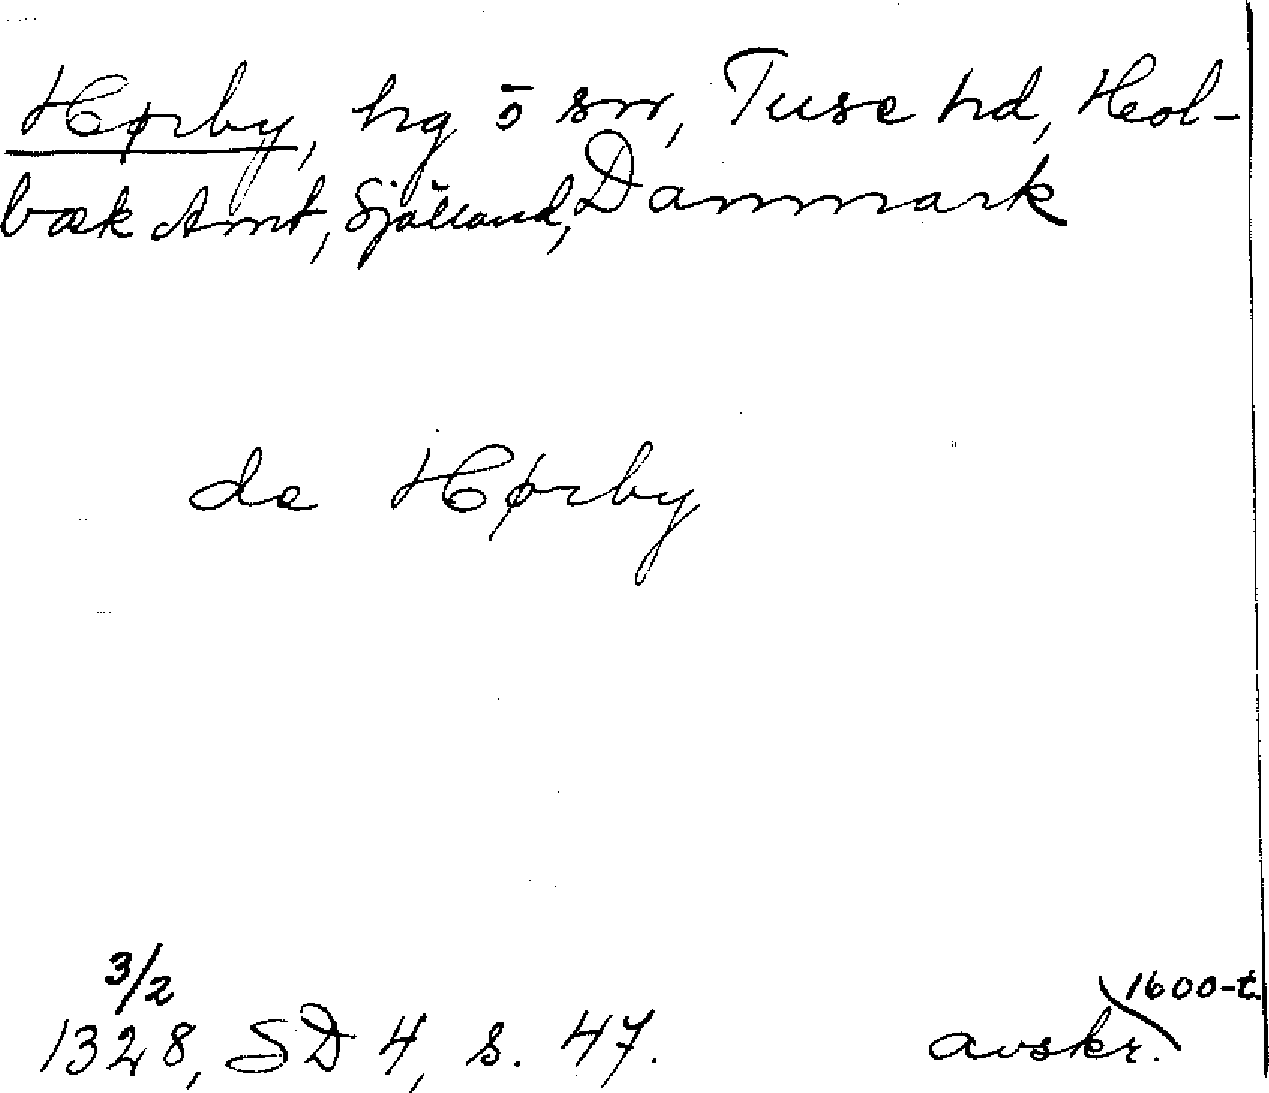 Hørby, hg o sn, Tuse hd, Hol-
bæk Amt, Själland, Danmark
de Hørby
3/2
1328, SD 4, s. 47.
1600-t.
avskr.